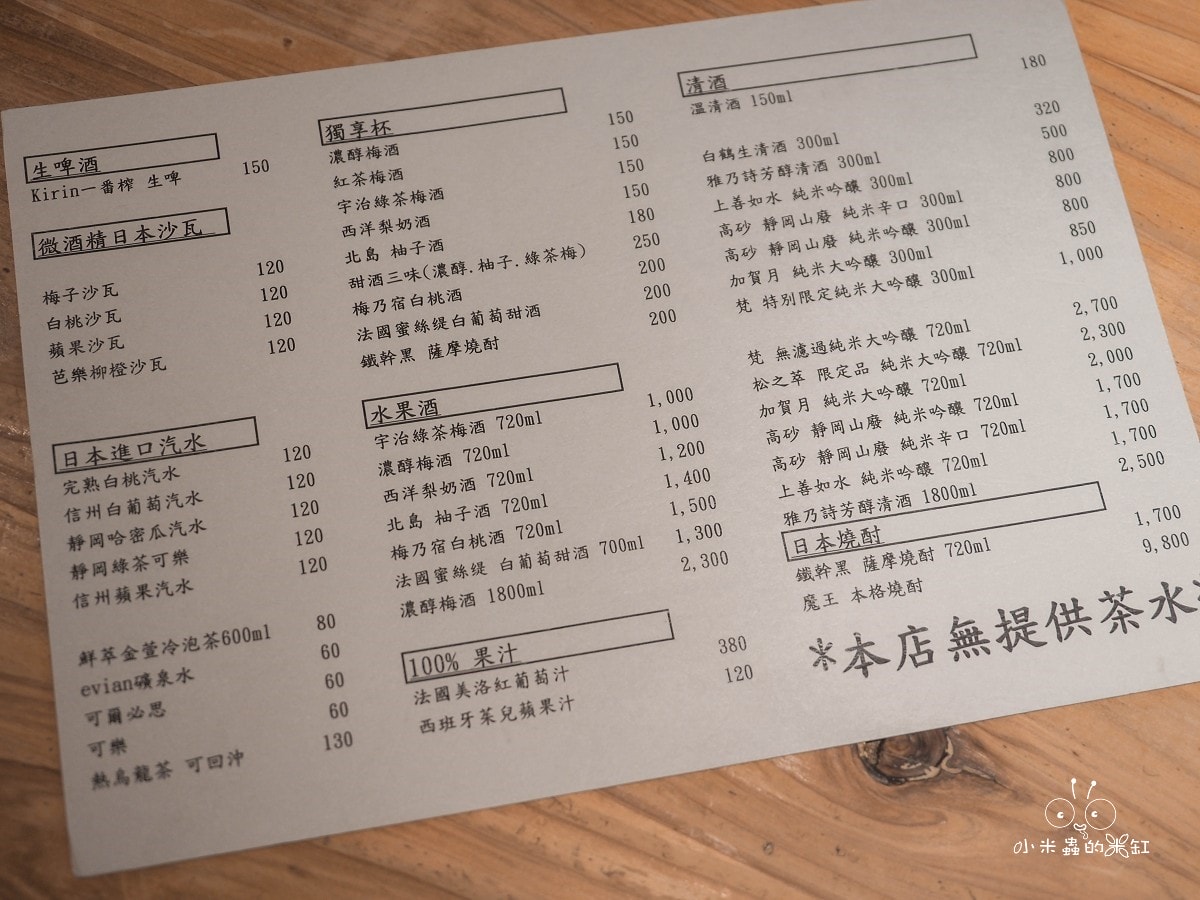 生啤酒
Kirin一番榨 生啤 150
微酒精日本沙瓦
梅子沙瓦 120
白桃沙瓦 120
蘋果沙瓦 120
芭樂柳橙沙瓦 120
日本進口汽水
完熟白桃汽水 120
信州白葡萄汽水 120
靜岡哈密瓜汽水 120
靜岡綠茶可樂 120
信州蘋果汽水 120
鮮萃金萱冷泡茶600ml 80
evian礦泉水 60
可爾必思 60
可樂 60
熱烏龍茶 可回沖 130
獨享杯
濃醇梅酒 150
紅茶梅酒 150
宇治綠茶梅酒 150
西洋梨奶酒 150
北島 柚子酒 180
甜酒三味(濃醇.柚子.綠茶梅) 250
梅乃宿白桃酒 200
法國蜜絲缇白葡萄甜酒 200
鐵幹黑 薩摩燒酎 200
水果酒
宇治綠茶梅酒 720ml 1,000
濃醇梅酒 720ml 1,000
西洋梨奶酒 720ml 1,200
北島 柚子酒 720ml 1,400
梅乃宿白桃酒 720ml 1,500
法國蜜絲缇 白葡萄甜酒 700ml 1,300
濃醇梅酒 1800ml 2,300
100% 果汁
法國美洛紅葡萄汁 380
西班牙茱兒蘋果汁 120
清酒
溫清酒 150ml 180
白鶴生清酒 300ml 320
雅乃詩芳醇清酒 300ml 500
上善如水 純米吟釀 300ml 800
高砂 靜岡山廢 純米辛口 300ml 800
高砂 靜岡山廢 純米吟釀 300ml 800
加賀月 純米大吟釀 300ml 850
梵 特別限定純米大吟釀 300ml 1,000
梵 無濾過純米大吟釀 720ml 2,700
松之萃 限定品 純米大吟釀 720ml 2,300
加賀月 純米大吟釀 720ml 2,000
高砂 靜岡山廢 純米吟釀 720ml 1,700
高砂 靜岡山廢 純米辛口 720ml 1,700
上善如水 純米吟釀 720ml 1,700
雅乃詩芳醇清酒 1800ml 2,500
日本燒酎
鐵幹黑 薩摩燒酎 720ml 1,700
魔王 本格燒酎 9,800
*本店無提供茶水
小米蟲的米缸